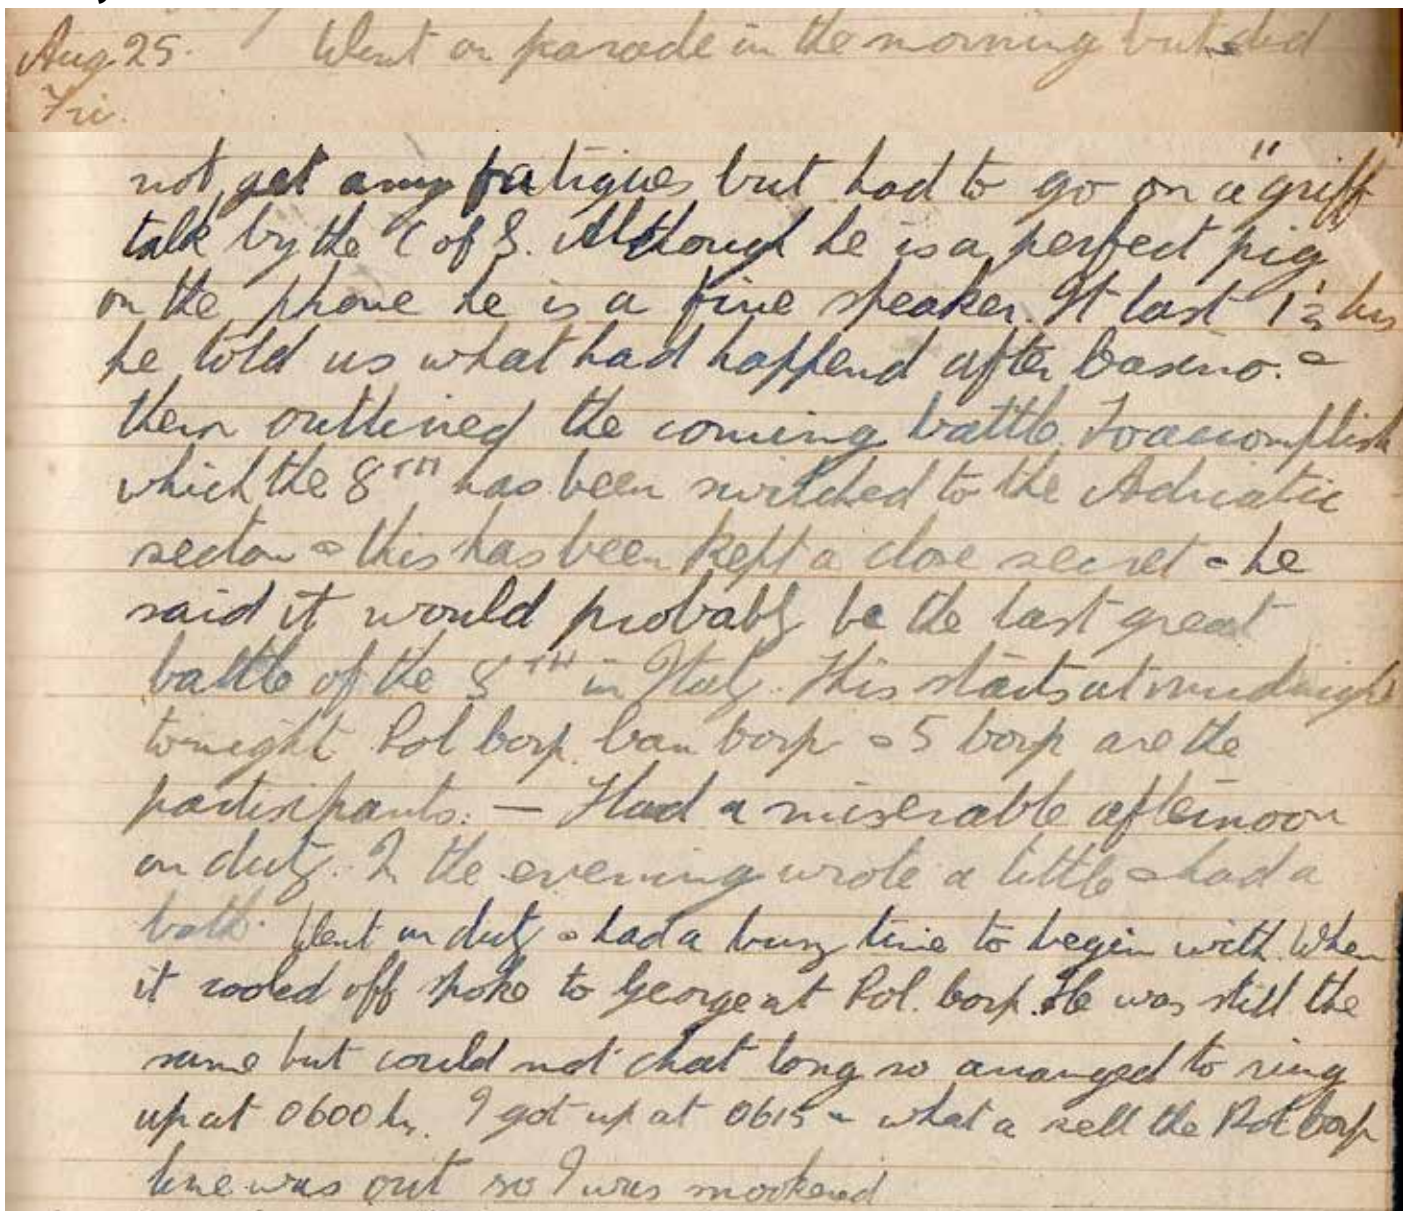 Aug 25. Went on parade in the morning but did
Fri.
not get any fatigues but had to go on a "griff"
talk by the C of S. Although he is a perfect pig
on the phone he is a fine speaker. It last 1½ hrs
he told us what had happend after Casino. &
then outlined the coming battle. To accomplish
which the 8TH has been switched to the Adriatic
sector & this has been kept a close secret & he
said it would probably be the last great
battle of the 8TH in Italy. This starts at midnight
tonight Pol Corp. Can Corp & 5 Corp are the
partisipants. — Had a miserable afternoon
on duty. In the evening wrote a little & had a
bath. Went on duty & had a busy time to begin with. When
it cooled off spoke to George at Pol. Corp. He was still the
same but could not chat long so arranged to ring
up at 0600 hrs. I got up at 0615 & what a sell the Pol Corp
line was out so I was